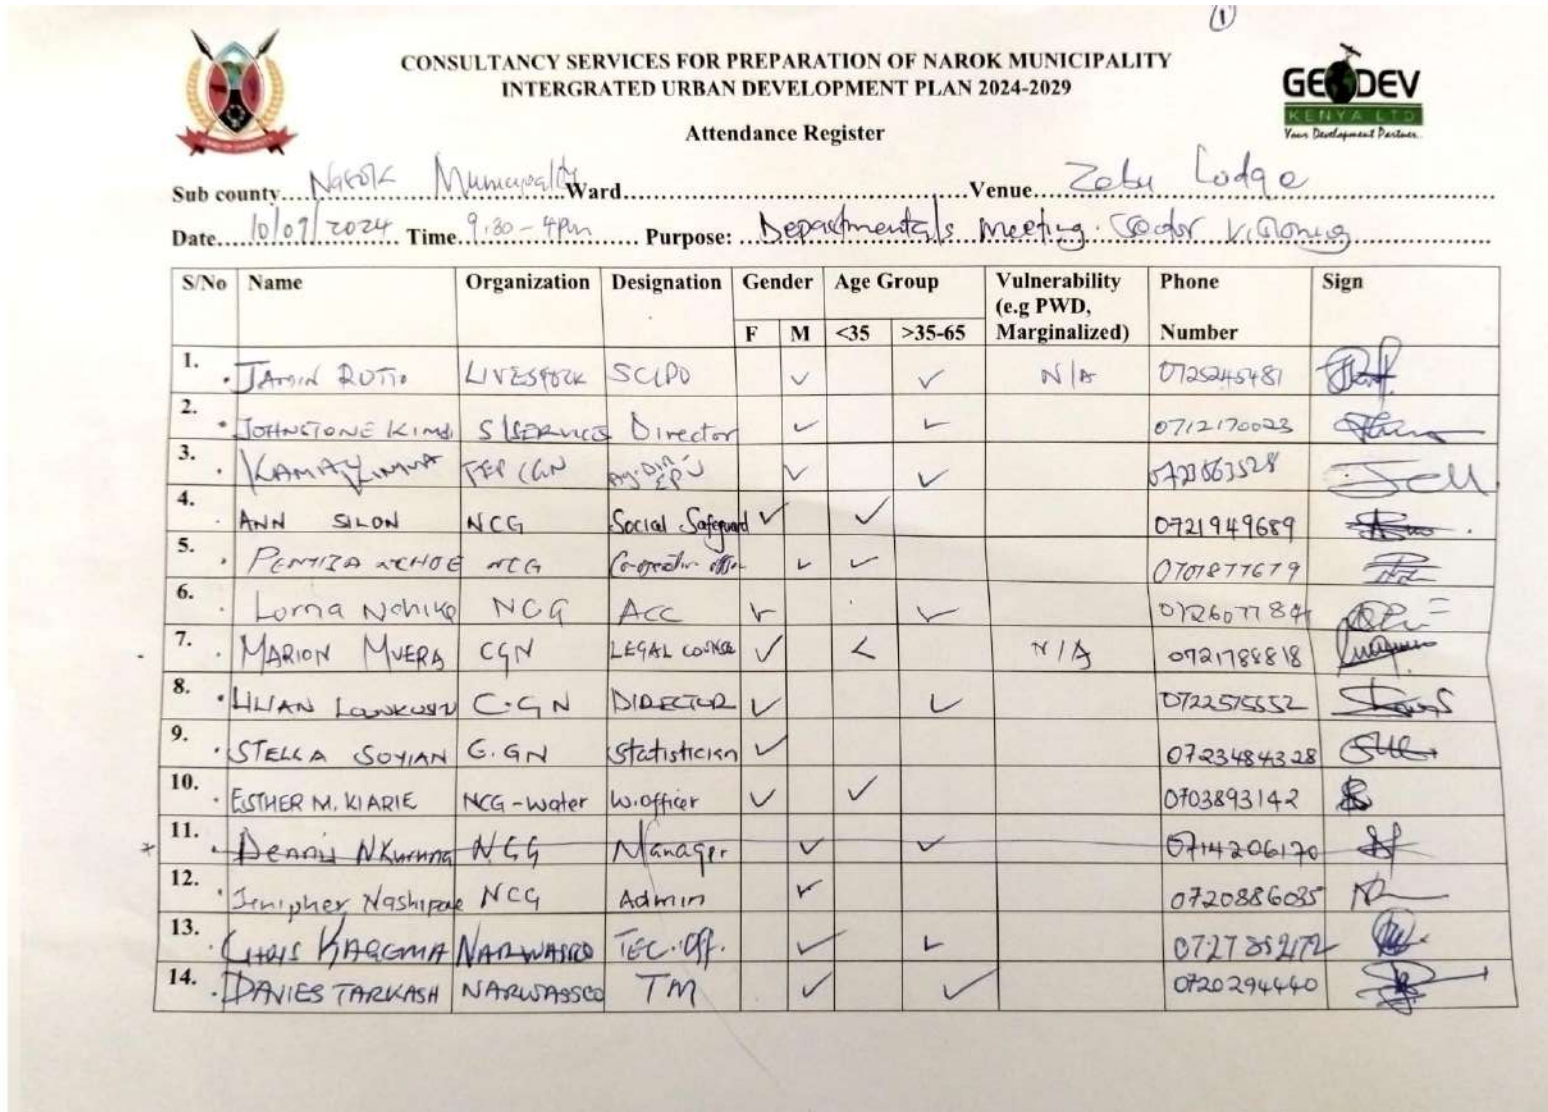 1
CONSULTANCY SERVICES FOR PREPARATION OF NAROK MUNICIPALITY
INTERGRATED URBAN DEVELOPMENT PLAN 2024-2029
GEODEV
KENYA LTD
Your Development Partner.
Attendance Register
Sub county Narok Municipality Ward Venue Zebu Lodge
Date 10/09/2024 Time 9:30 - 4pm Purpose: Departmentals meeting. Sector visioning
S/No Name Organization Designation Gender Age Group Vulnerability (e.g PWD, Marginalized) Phone Number Sign
F M <35 >35-65
1. RUTTO LIVESTOCK SCLPO ✓ ✓ N/A 0725245481
2. JOHNSTONE S/SERVICES Director ✓ ✓ 0712170023
3. ✓ ✓
4. ANN SILON NCG Social Safeguard ✓ ✓ 0721949689
5. NCG ✓ ✓ 0701877679
6. Lorna NCG ACC ✓ ✓
7. MARION MUERA CGN LEGAL COUNSEL ✓ ✓ N/A 0721788818
8. LILIAN C.GN DIRECTOR ✓ ✓ 0722575552
9. STELLA SOYIAN C.GN Statistician ✓ 0723484328
10. ESTHER M. KIARIE NCG-Water W.officer ✓ ✓ 0703893142
11. Dennis Nkuruna NCG Manager ✓ ✓ 0714206170
12. Jenipher Nashipae NCG Admin ✓ 0720886035
13. CHRIS NARWASSCO TEC. Off. ✓ ✓
14. DAVIES TARKASH NARWASSCO TM ✓ ✓ 0720294440